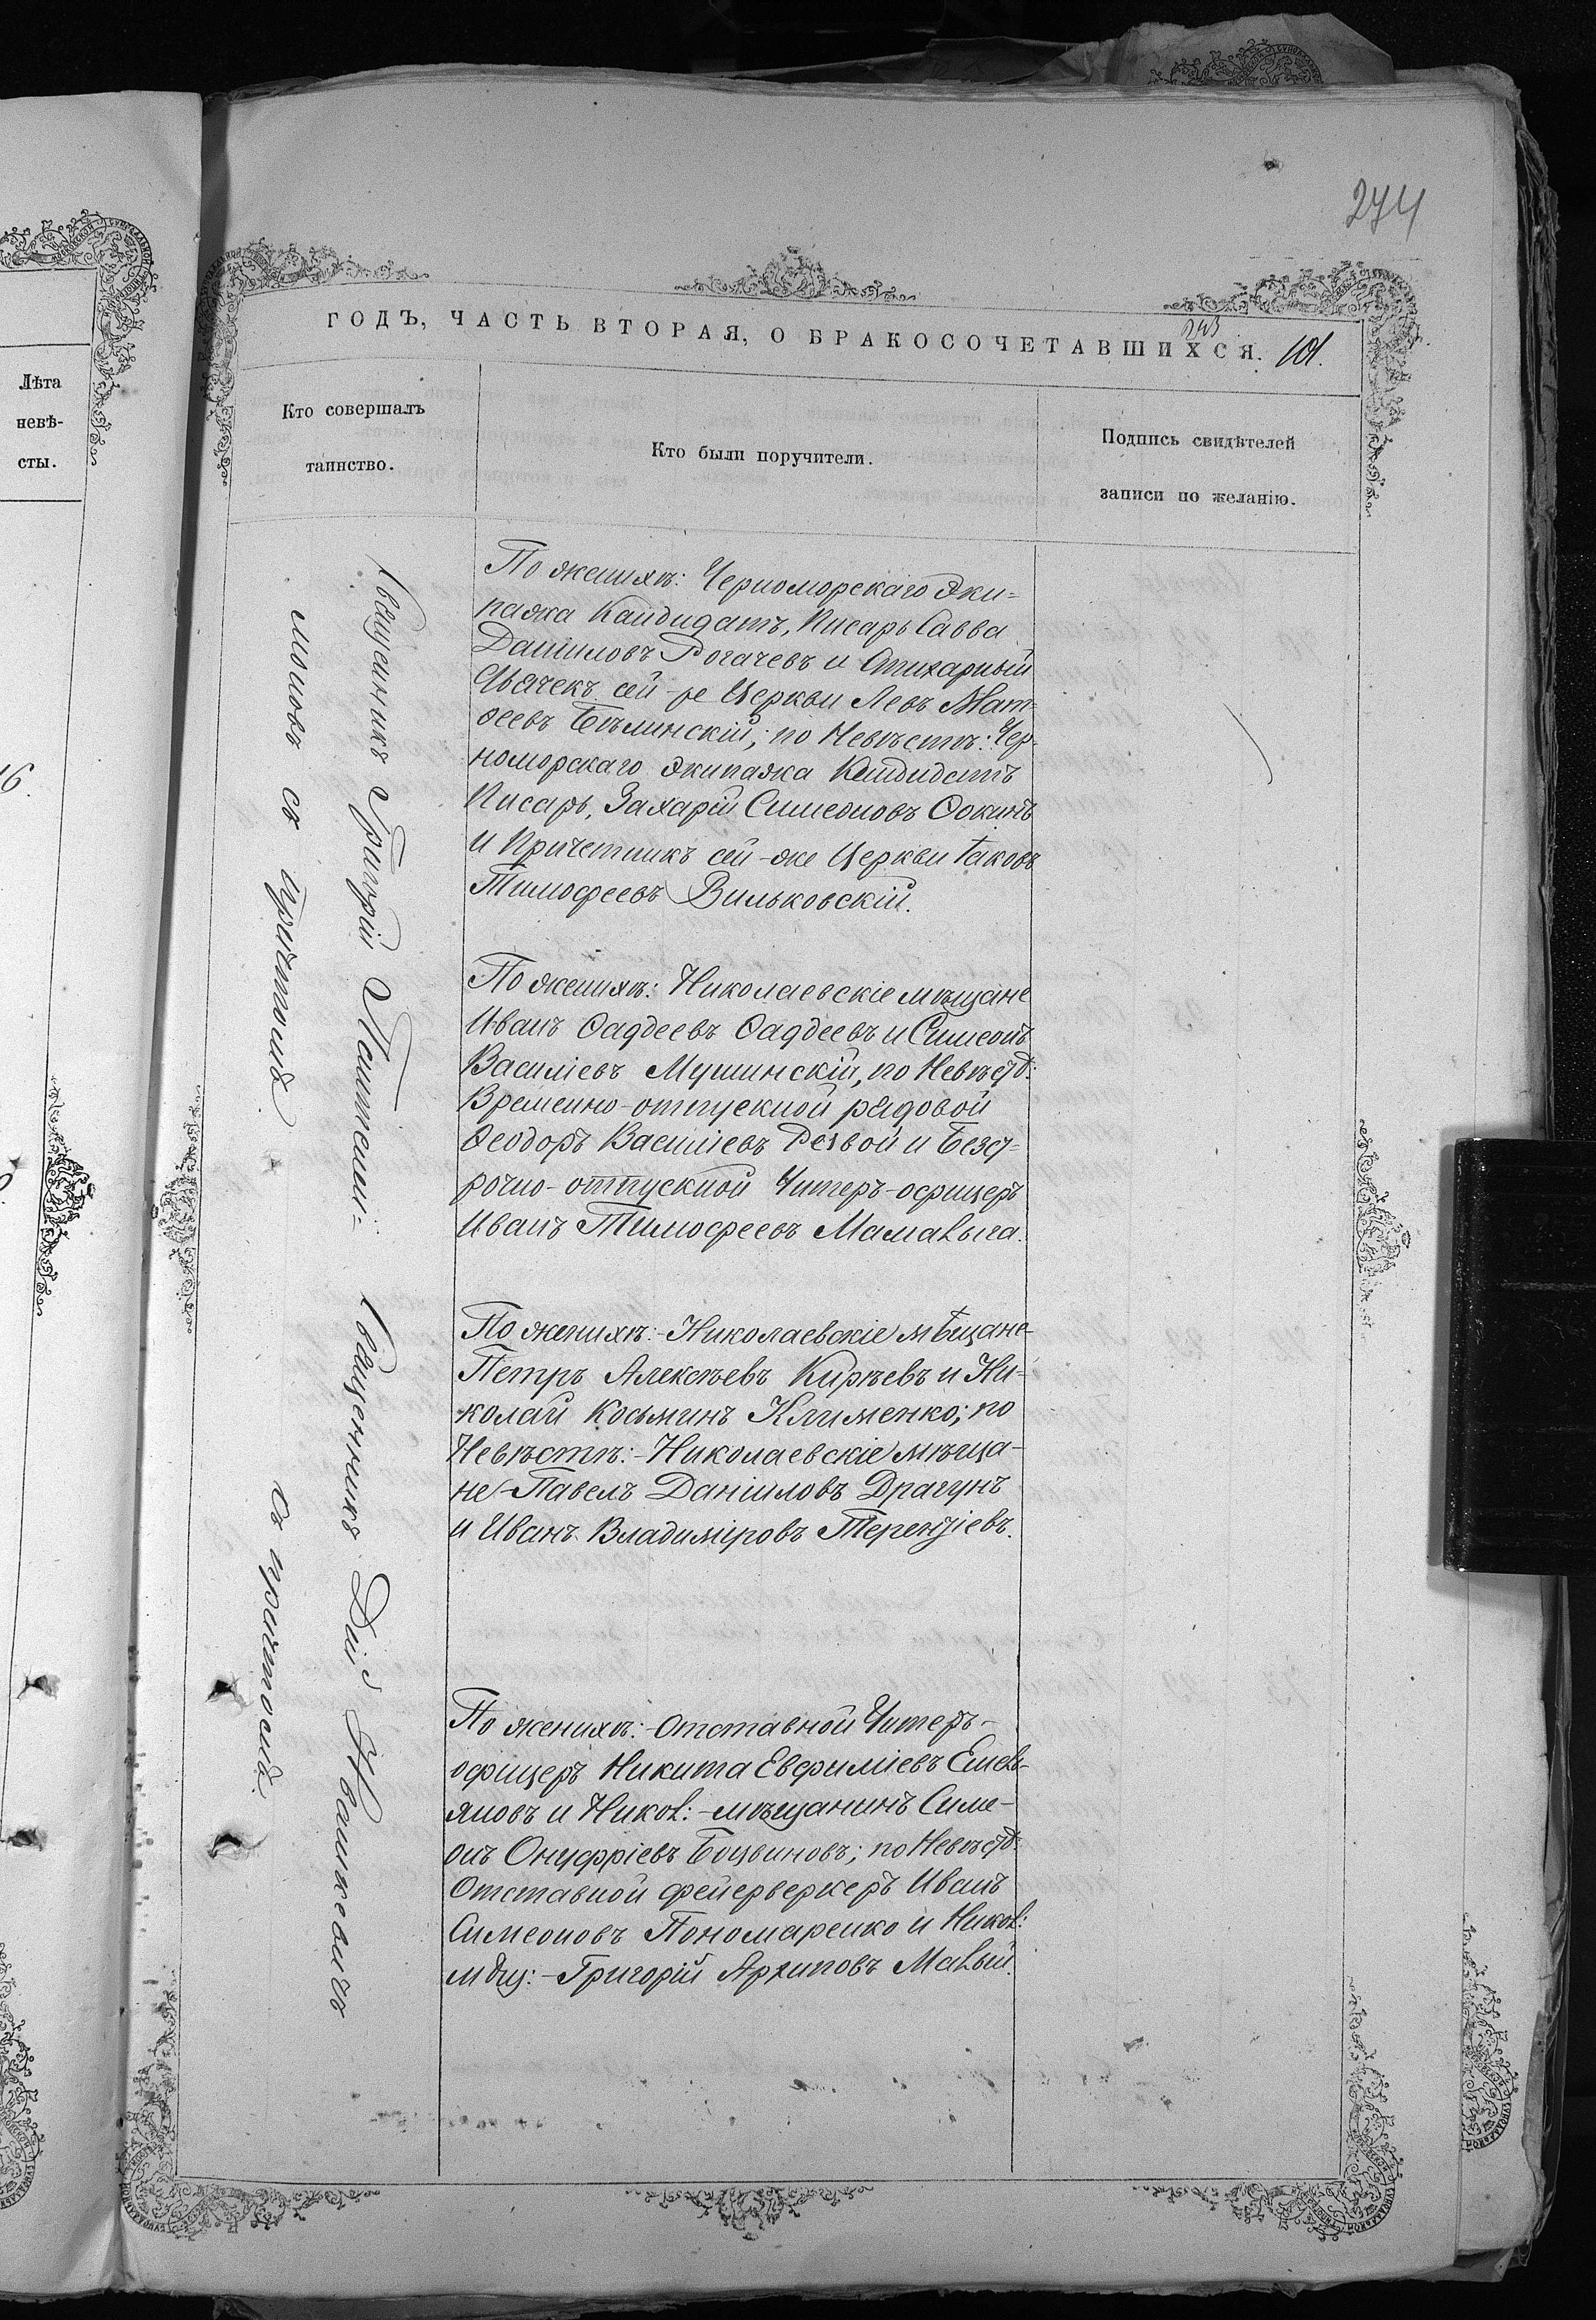 274
ГОДЪ, ЧАСТЬ ВТОРАЯ, О БРАКОСОЧЕТАВШИХСЯ. 101.
Лѣта
невѣ-
сты.
Кто совершалъ
таинство.
Кто были поручители.
Подпись свидѣтелей
записи по желанію.
Священникъ Григорій
моновъ съ причтомъ
Священникъ Дм. Ивашкевичъ
съ причтомъ.
По женихѣ: Черноморскаго Эки-
пажа Кандидатъ, Писарь Савва
Даниловъ Рогачевъ и Стихарный
Дьячекъ сей-же Церкви Левъ Мат-
ѳеевъ Бѣлинскій; по Невѣстѣ: Чер-
номорскаго экипажа Кандидатъ
Писарь, Захарій Симеоновъ Ѳокинъ
и Причетникъ сей-же Церкви Іаковъ
Тимофеевъ Вильковскій.
По женихѣ: Николаевскіе мѣщане
Иванъ Ѳаддеевъ Ѳаддеевъ и Симеонъ
Василіевъ Мушинскій, по Невѣст:
Временно-отпускной рядовой
Ѳеодоръ Василіевъ Резвой и Безс-
рочно-отпускной Унтеръ-офицеръ
Иванъ Тимофеевъ Мамалыга.
По женихѣ:-Николаевскіе мѣщане-
Петръ Алексѣевъ Кирѣевъ и Ни-
колай Косьминъ Клименко; по
Невѣстѣ:-Николаевскіе мѣща-
не-Павелъ Даніиловъ Драгунъ
и Иванъ Владиміровъ Терентіевъ.
По женихѣ:-Отставной Унтеръ-
офицеръ Никита Евфиміевъ Емель-
яновъ и Никол:-мѣщанинъ Симе-
онъ Онуфріевъ Боцвиновъ; по Невѣст:
Отставной фейерверкеръ Иванъ
Симеоновъ Пономаренко и Никол:
мѣщ:-Григорій Архиповъ Малый.